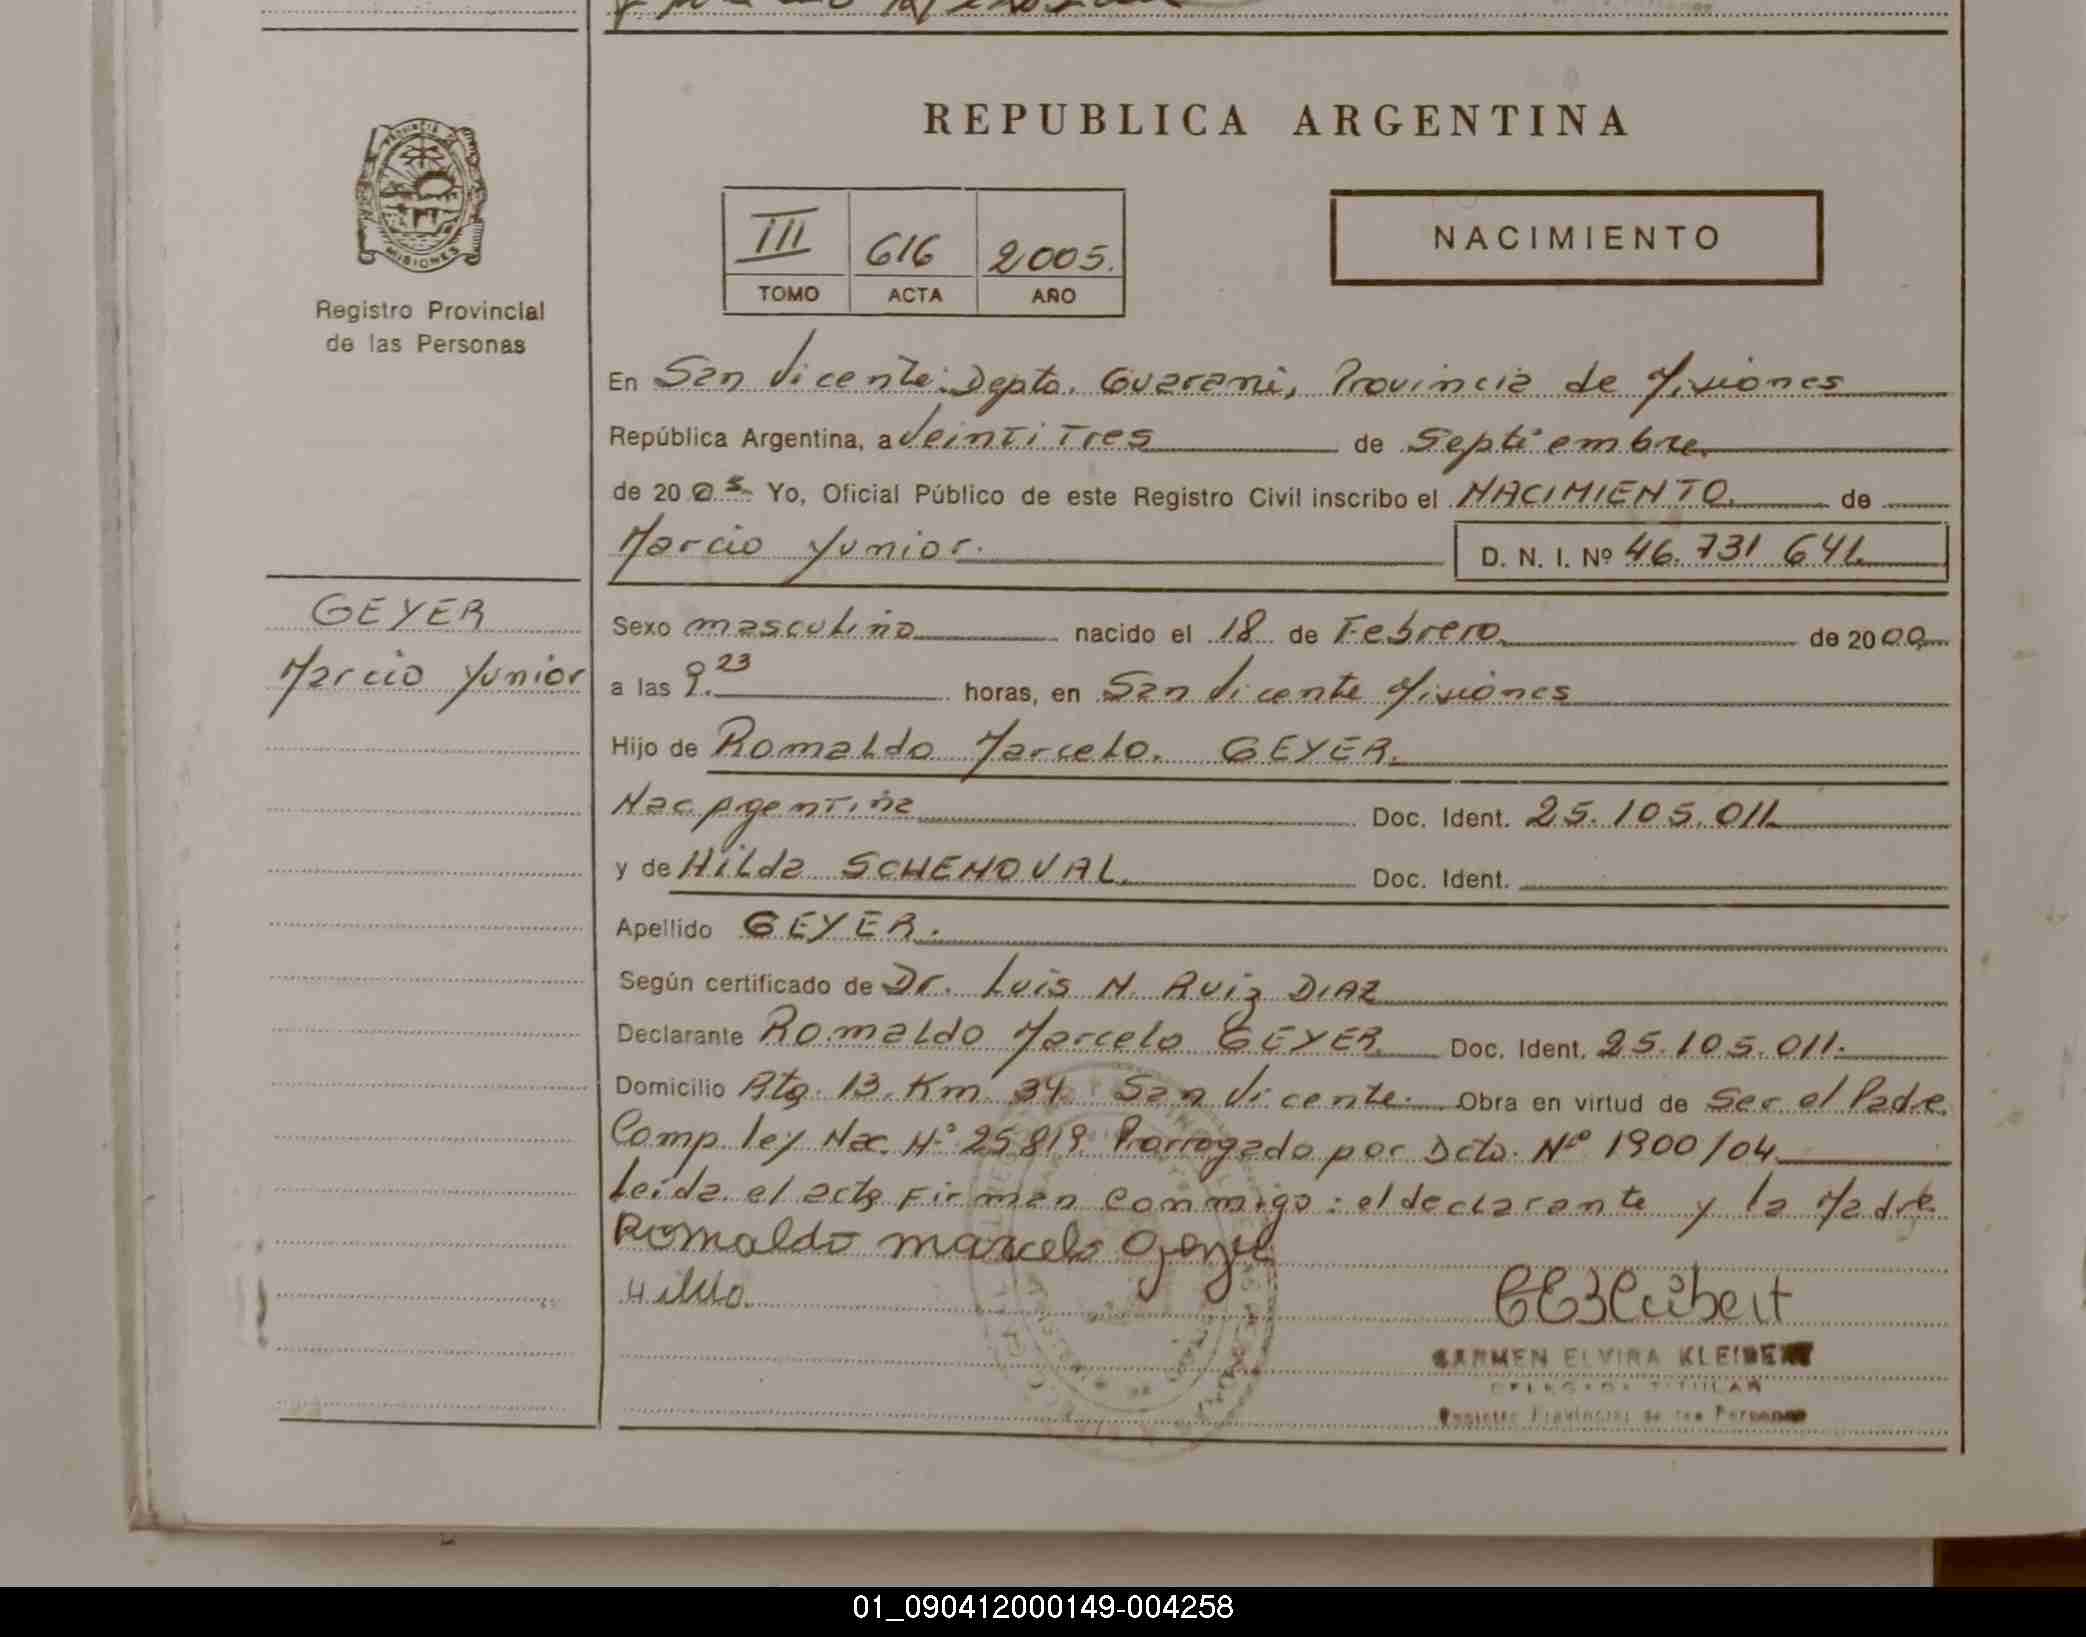 REPUBLICA ARGENTINA
PROVINCIA DE
MISIONES
Registro Provincial
de las Personas
III 616 2005.
TOMO ACTA AÑO
NACIMIENTO
En San Vicente. Depto. Guarani, Provincia de Misiones
República Argentina, a Veintitres de Septiembre
de 2005 Yo, Oficial Público de este Registro Civil inscribo el NACIMIENTO. de
Marcio Yunior. D. N. I. Nº 46.731 641
GEYER
Marcio Yunior
Sexo masculino nacido el 18 de Febrero de 2000
a las 9.23 horas, en San Vicente Misiones
Hijo de Romaldo Marcelo. GEYER.
Nac Argentina Doc. Ident. 25.105.011
y de Hilda SCHENOVAL Doc. Ident.
Apellido GEYER.
Según certificado de Dr. Luis N. Ruiz DIAZ
Declarante Romaldo Marcelo GEYER Doc. Ident. 25.105.011.
Domicilio Rta. 13. Km 34 San Vicente. Obra en virtud de Ser el Padre
Comp. ley Nac. Nº 25819 Prorrogado por Dcto. Nº 1900/04
Leida el acta Firman conmigo: el declarante y la Madre
Romaldo marcelo Geyer
Hilda
CARMEN ELVIRA KLEIBERT
DELEGADA TITULAR
Registro Provincial de las Personas
01_090412000149-004258